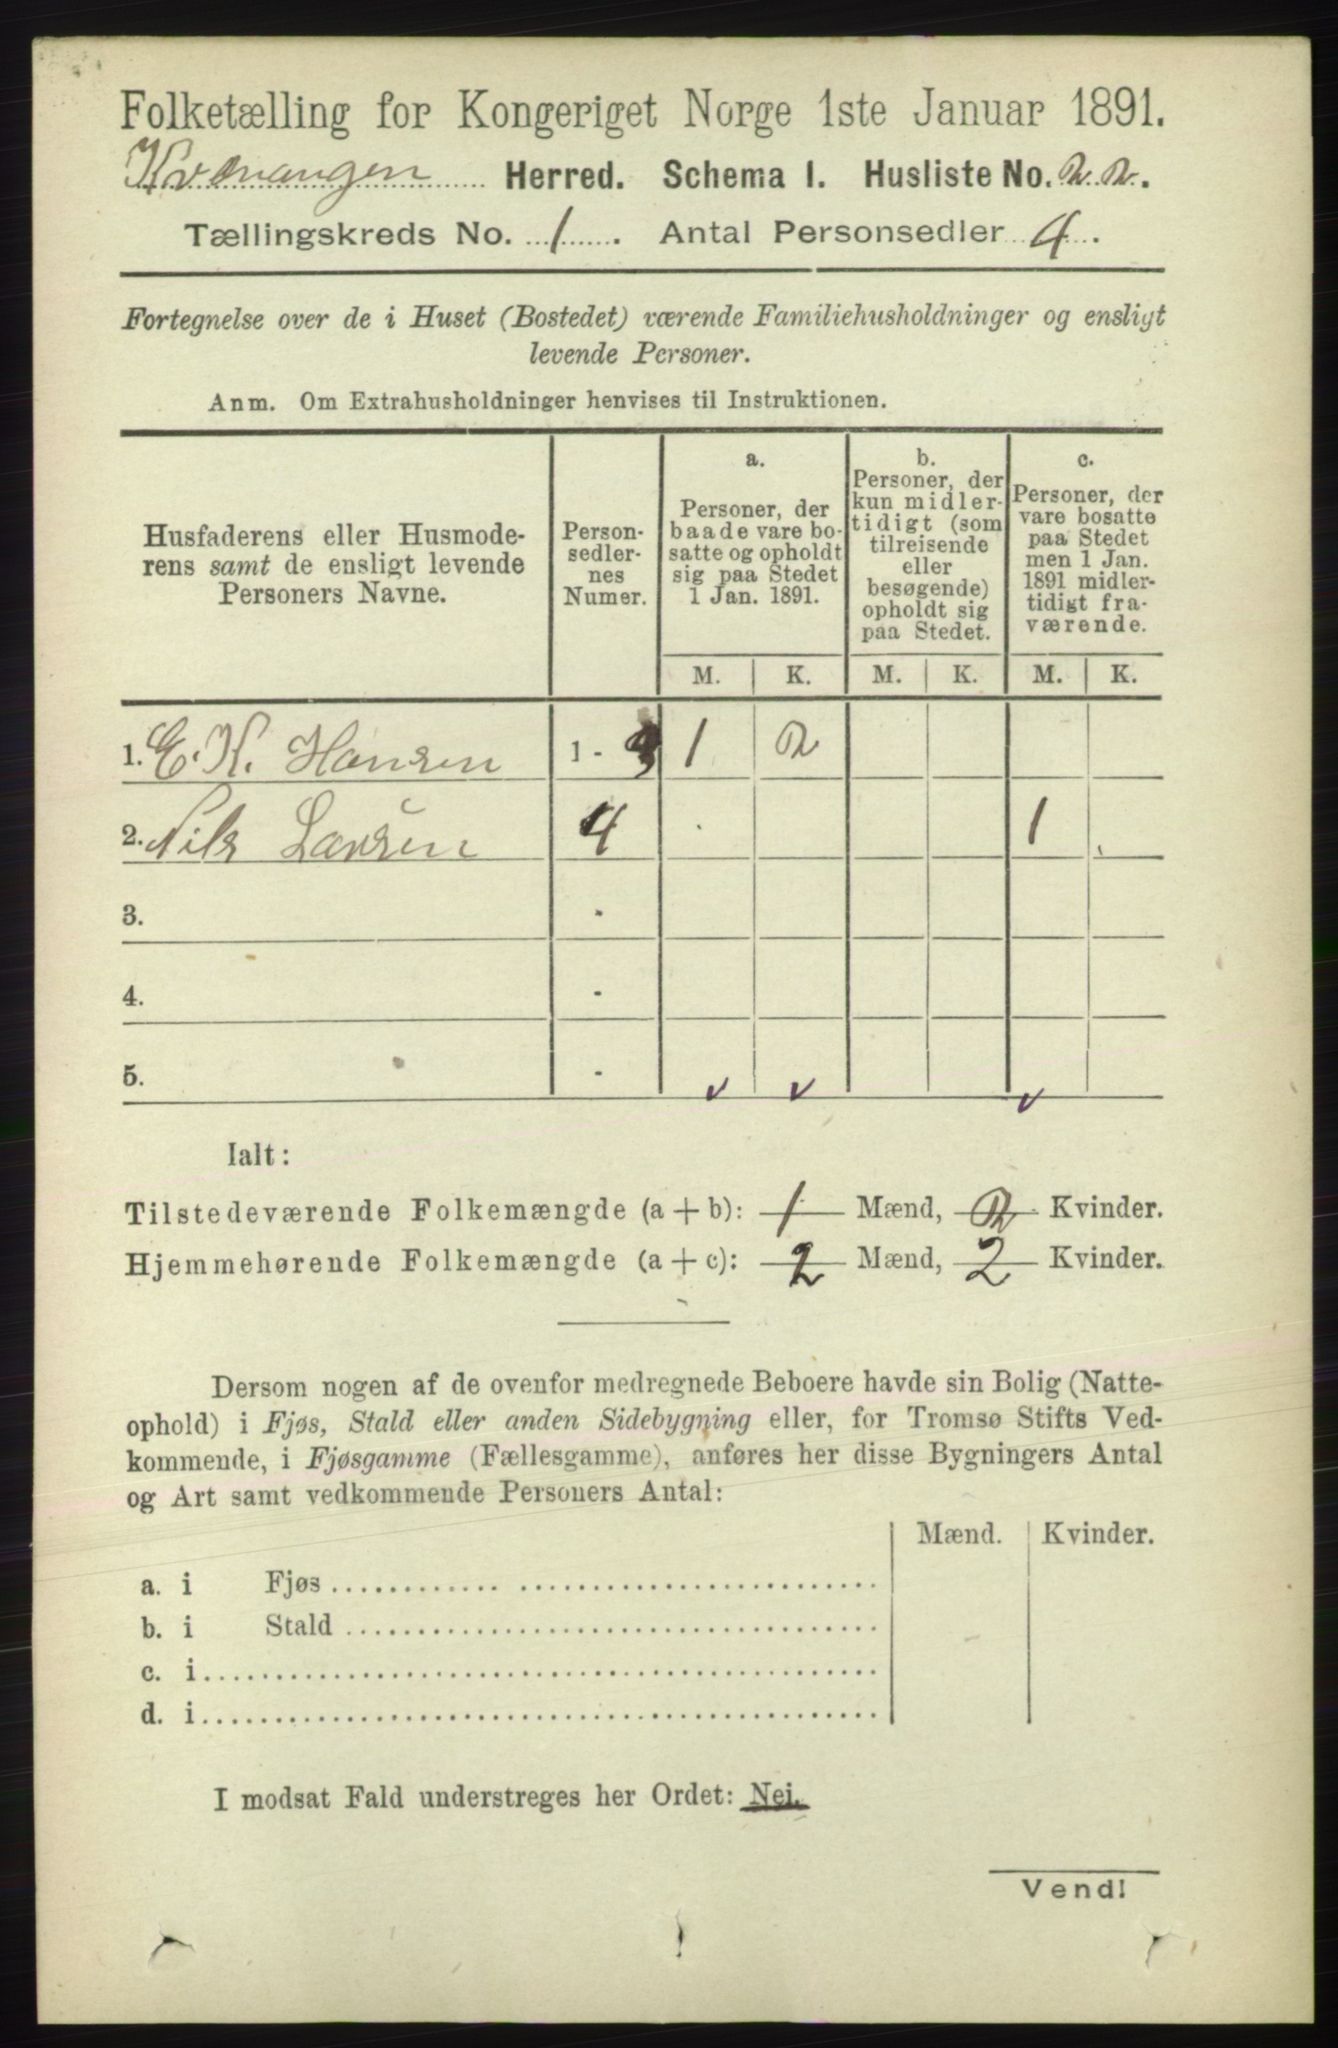 Folketælling for Kongeriget Norge 1ste Januar 1891.
Kvænangen Herred. Schema I. Husliste No. 22.
Tællingskreds No. 1. Antal Personsedler 4.
Fortegnelse over de i Huset (Bostedet) værende Familiehusholdninger og ensligt
levende Personer.
Anm. Om Extrahusholdninger henvises til Instruktionen.
Husfaderens eller Husmode-
rens samt de ensligt levende
Personers Navne.
Person-
sedler-
nes
Numer.
a.
Personer, der
baade vare bo-
satte og opholdt
sig paa Stedet
1 Jan. 1891.
b.
Personer, der
kun midler-
tidigt (som
tilreisende
eller
besøgende)
opholdt sig
paa Stedet.
c.
Personer, der
vare bosatte
paa Stedet
men 1 Jan.
1891 midler-
tidigt fra-
værende.
M. K. M. K. M. K.
1. E. K. Hansen 1 - 3 1 2
2. Nils Larsen 4 1
3.
4.
5.
Ialt:
Tilstedeværende Folkemængde (a + b): 1 Mænd, 2 Kvinder.
Hjemmehørende Folkemængde (a + c): 2 Mænd, 2 Kvinder.
Dersom nogen af de ovenfor medregnede Beboere havde sin Bolig (Natte-
ophold) i Fjøs, Stald eller anden Sidebygning eller, for Tromsø Stifts Ved-
kommende, i Fjøsgamme (Fællesgamme), anføres her disse Bygningers Antal
og Art samt vedkommende Personers Antal:
Mænd. Kvinder.
a. i Fjøs
b. i Stald
c. i
d. i
I modsat Fald understreges her Ordet: Nei.
Vend!